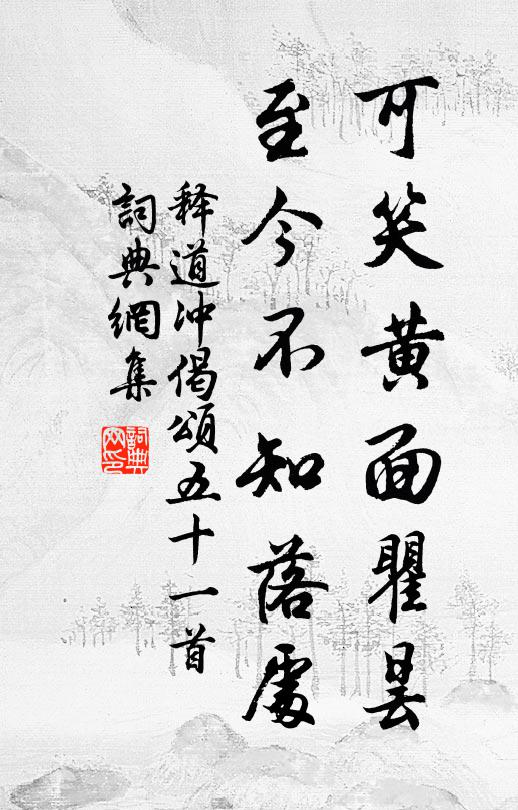 可笑黄面瞿昙
至今不知落處
释道冲偈頌五十一首
詞典網集
詞典网印